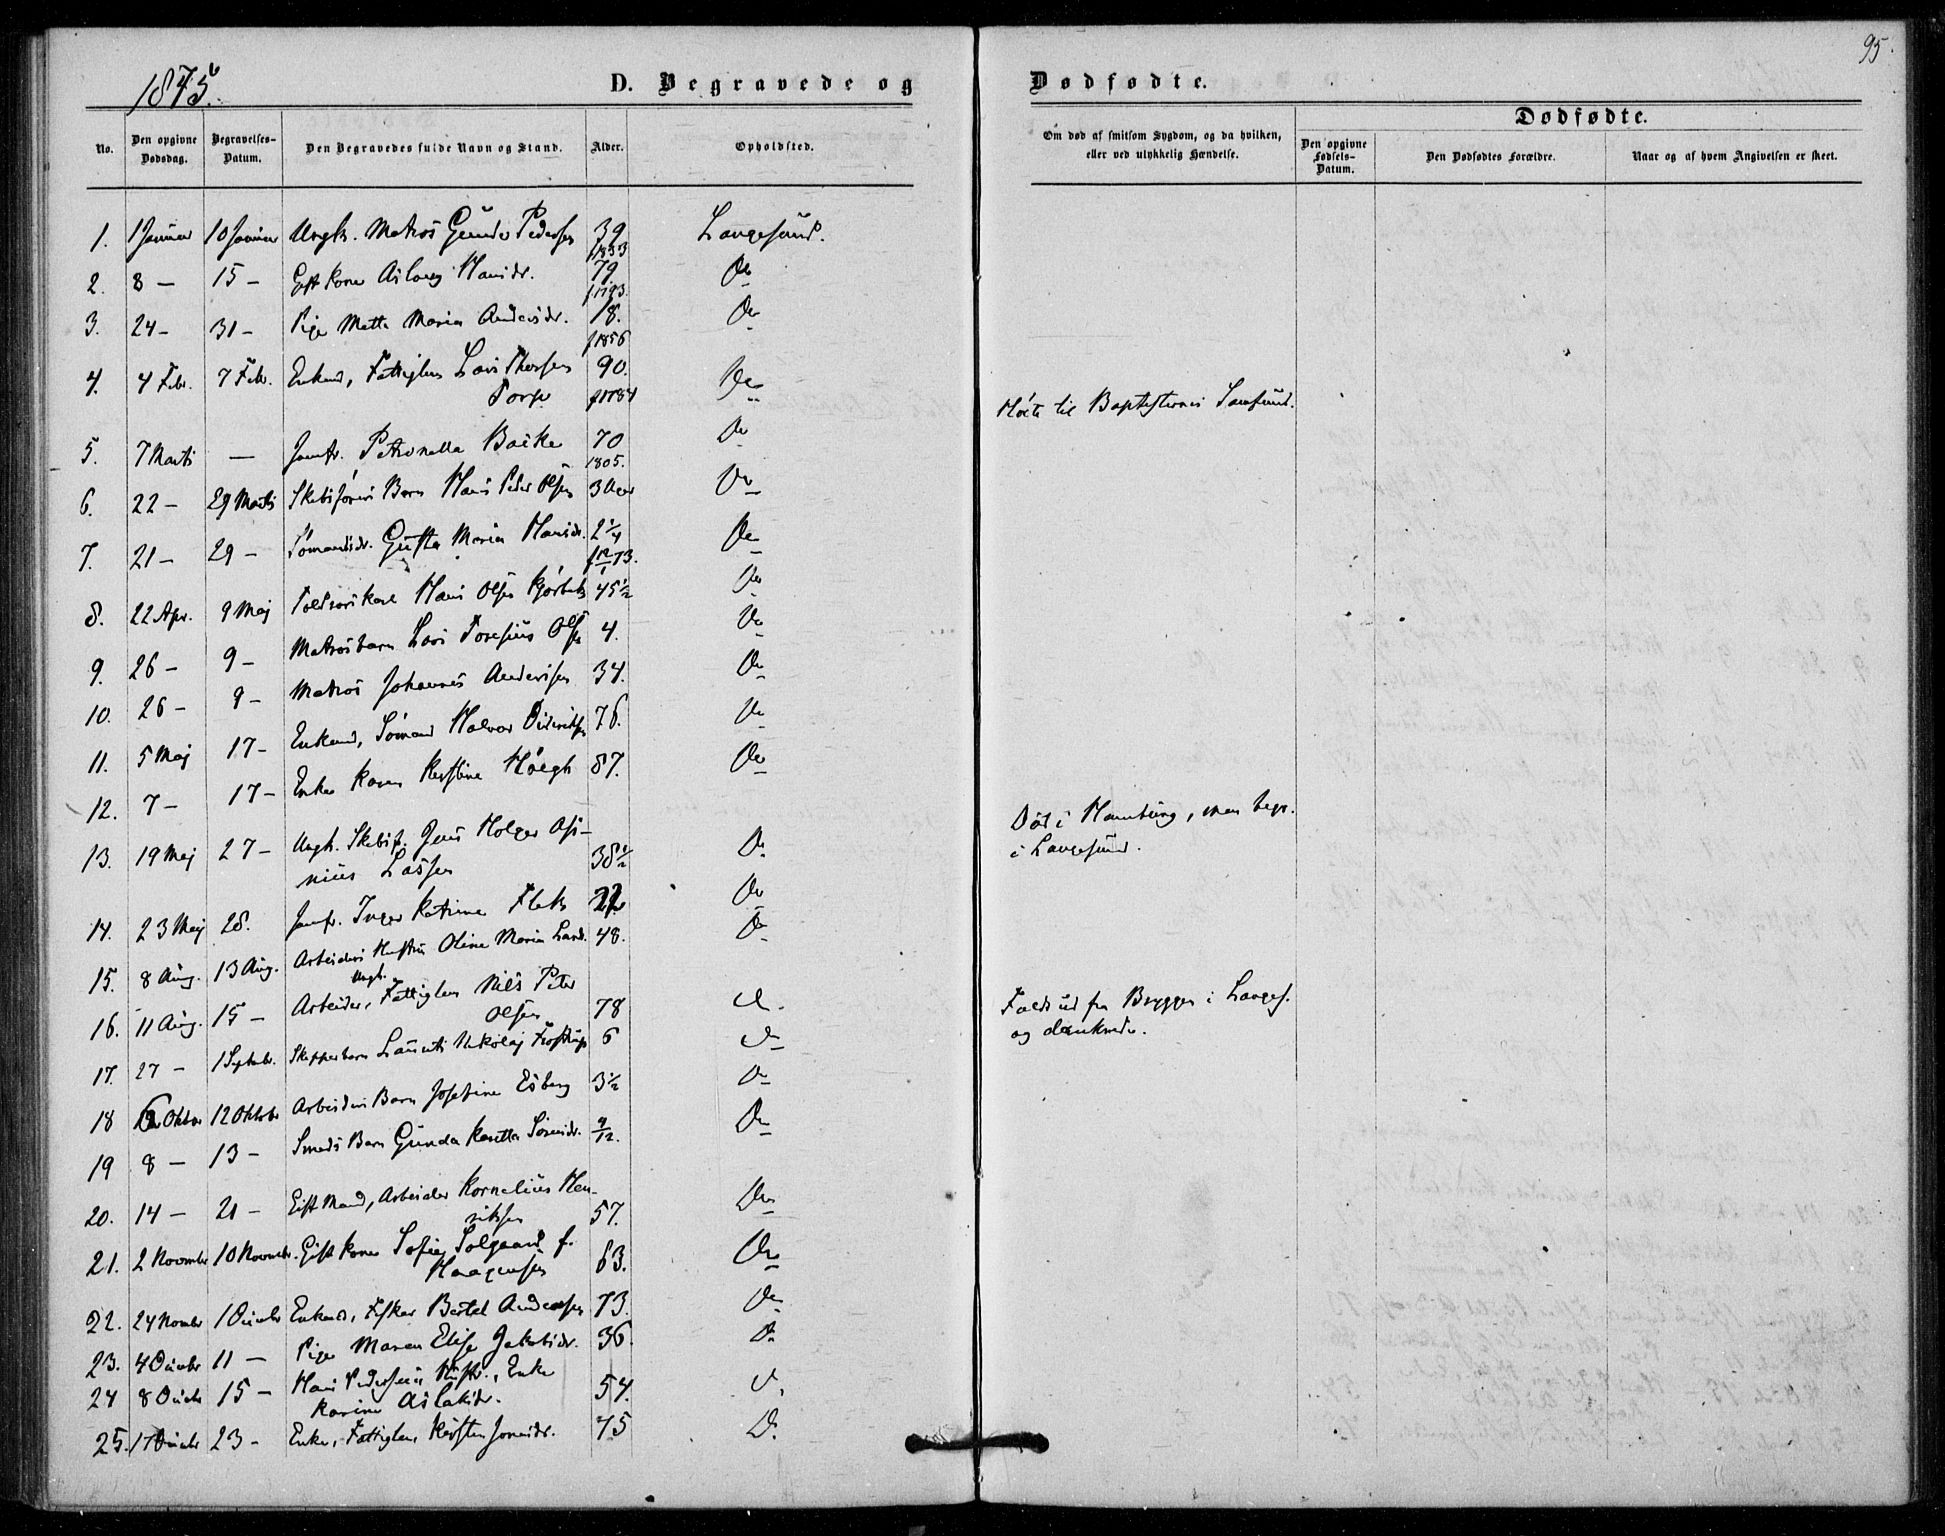 95.
1875.
D. Begravede og Dødfødte.
No. Den opgivne Dødsdag. Begravelses-Datum. Den Begravedes fulde Navn og Stand. Alder. Opholdsted. Om død af smitsom Sygdom, og da hvilken, eller ved ulykkelig Hændelse. Dødfødte. Den opgivne Fødsels-Datum. Den Dødfødtes Forældre. Naar og af hvem Angivelsen er skeet.
1. 1 Januar 10 Januar Ungk. Matros Gunder Pedersen 39 f 1833 Langesund.
2. 8 — 15 — Gift Kone Aslaug Hansdr. 79 Do
3. 24 — 31 — Pige Mette Maria Andersdr. 18. f 1856 Do
4. 4 Febr. 7 Febr. Enkem, Fattiglem Lars Thorsen 90. Do
Torp f 1784 Hørte til Baptisternes Samfund.
5. 7 Marts — Jomfr. Petronella Backe 70 1805. Do
6. 22 — 29 Marts Skibsførers Barn Hans Peder Olsen 3 Do
7. 21 — 29 — Sømandsdr. Gusta Maria Hansdr. 2 1/4 Do
8. 22 Apr. 9 Maj Hans Olsen 45 1/2 Do
9. 26 — 9 — Matrosbarn Lars Olsen 4. Do
10. 26 — 9 — Matros Johannes Andersen 34. Do
11. 5 Maj 17 — Enkemd, Sømand Halvor Didriksen 76. Do
12. 7 — 17 — Enke Karen Kirstine Høegh 87. Do
13. 19 Maj 27 — Ungk. Skibsf. Jens Holger Asi-
nius Lassen 38 1/2 Do Död i Hamburg, men begr.
i Langesund.
14. 23 Maj 28. Jomfr. Inger Katrine Do
15. 8 Aug. 13 Aug. Arbeiders Hustru Oline Maria 48. Do
Ungk.
16. 11 Aug. 15 — Arbeider, Fattiglem Nils Peter
Olsen 78 Do. Faldt ud fra Bryggen i Langes.
og druknede.
17. 27 — 1 Septbr. Skipperbarn Laurits Nikolaj 6 Do
18 Oktbr 12 Oktober Arbeiders Barn Josefine Esberg 3 1/2 Do
19 8 — 13 — Smeds Barn Gunda Karette 9/12. Do
20. 14 — 21 — Gift Mand, Arbeider Kornelius Hen-
riksen 57. Do
21. 2 November 10 Novembr. Gift Kone Sofie Solgaard f.
Haagensen 63. Do
22. 24 Novembr 1 Decembr Enkemd, Fisker Bertel Andersen 73. Do
23. 4 Decembr 11 — Pige Maren Elise Jakobsdr. 36. Do
24 8 Decbr 15 — Hans Pedersens Hustr., Enke
Karine Aslaksdr. 54. Do
25. 17 Decembr 23 — Enke, Fattiglem Kirsten 75 Do